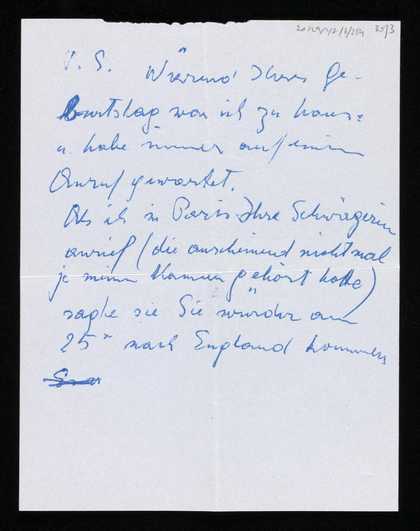 3513
P. S. Während Ihres Ge-
burtstag war ich zu Haus
u. habe immer auf einen
Anruf gewartet.
Als ich in Paris Ihre Schwägerin
anrief (die anscheinend nicht mal
je meinen Namen gehört hatte)
sagte sie Sie würden am
25" nach England kommen